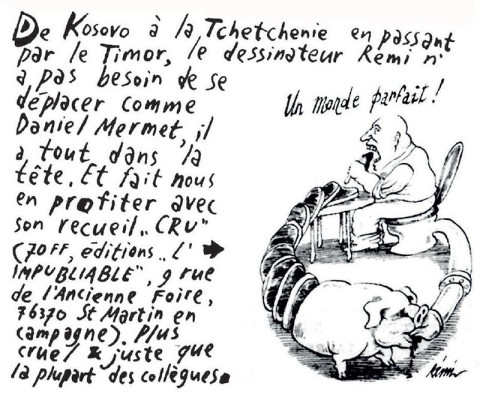 De Kosovo à la Tchetchenie en passant
par le Timor, le dessinateur Remi n'
a pas besoin de se
déplacer comme
Daniel Mermet, il
a tout dans la
tête. Et fait nous
en profiter avec
son recueil „CRU"
(70FF, éditions „L'
IMPUBLIABLE", 9 rue
de l'Ancienne Foire,
76370 St Martin en
campagne). Plus
cruel & juste que
la plupart des collègues.
Un monde parfait!
Rémi